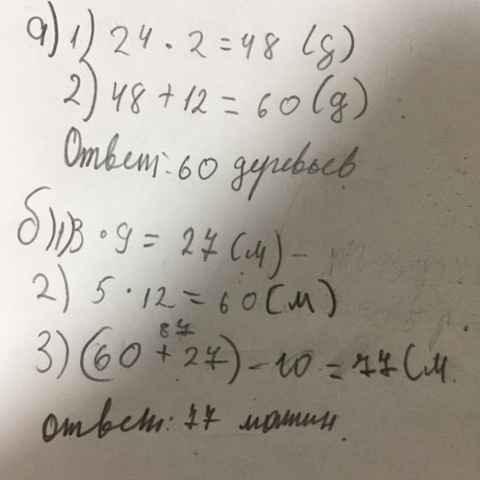 а) 1) 24 · 2 = 48 (д)
2) 48 + 12 = 60 (д)
Ответ: 60 деревьев
б) 1) 3 · 9 = 27 (м) -
2) 5 · 12 = 60 (м)
87
3) (60 + 27) - 10 = 77 (м
ответ: 77 машин.